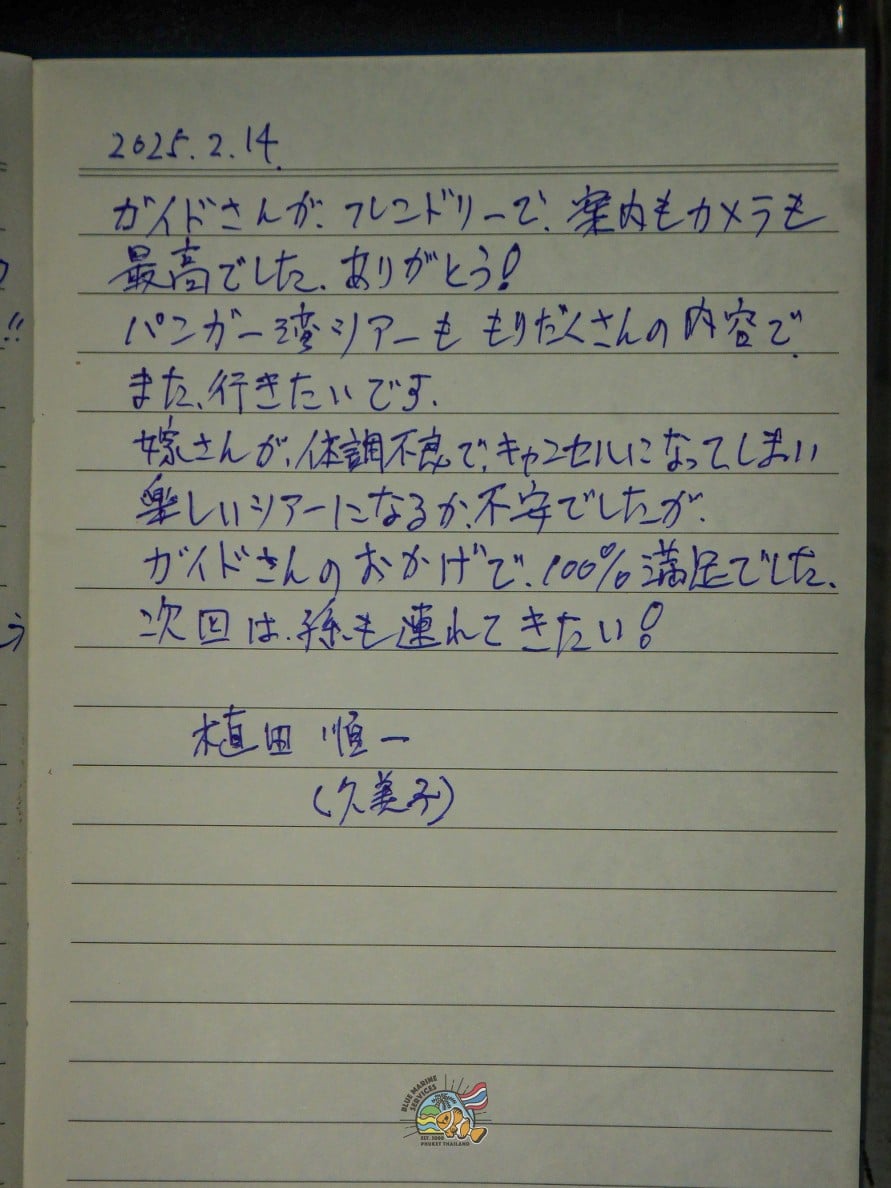 2025.2.14.
ガイドさんが、フレンドリーで、案内もカメラも
最高でした。ありがとう!
パンガー湾ツアーも もりだくさんの内容で、
また、行きたいです。
嫁さんが、体調不良で、キャンセルになってしまい
楽しいツアーになるか、不安でしたが、
ガイドさんのおかげで、100%満足でした。
次回は、孫も連れてきたい!
植田 順一
(久美子)
う
!!
BLUE MARINE SERVICES
EST. 2000
PHUKET THAILAND